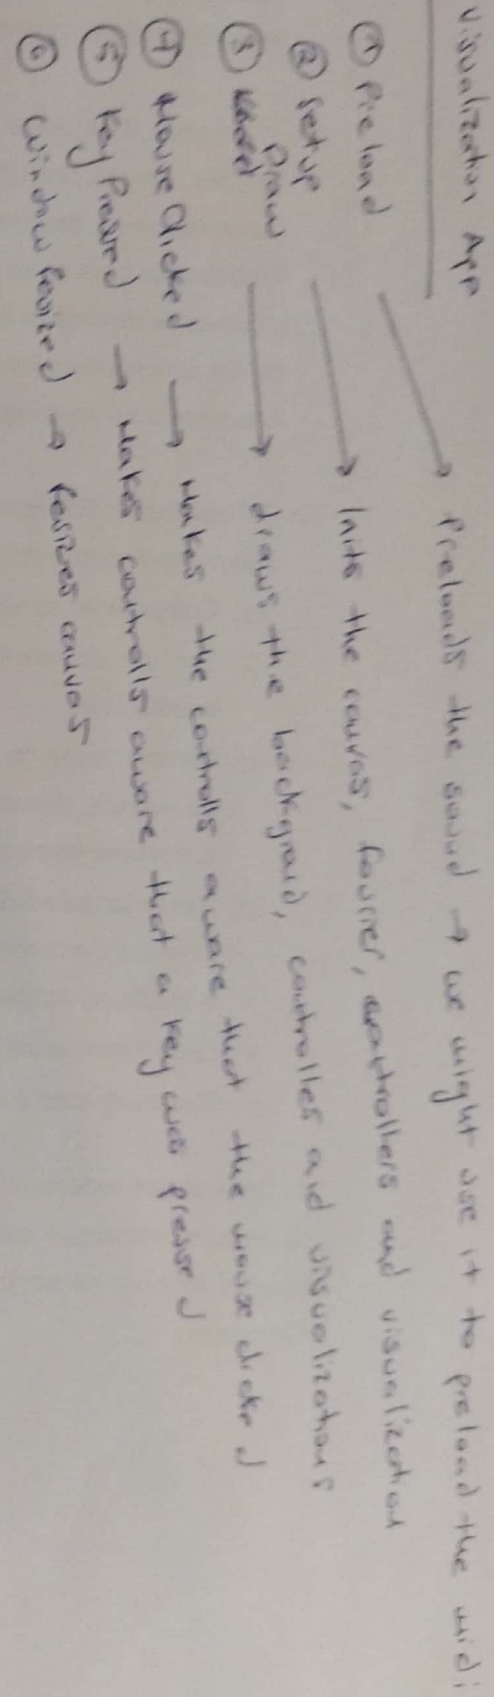 Visualization App
① Preload → Preloads the sound → we might use it to preload the midi
② Setup → Inits the canvas, fourier, controllers and visualization
③ Draw → draws the background, controlles and visualizations
④ Mouse Clicked → Makes the controlls aware that the mouse clicked
⑤ Key Pressed → Makes controlls aware that a key was pressed
⑥ Window Resized → Resizes canvas